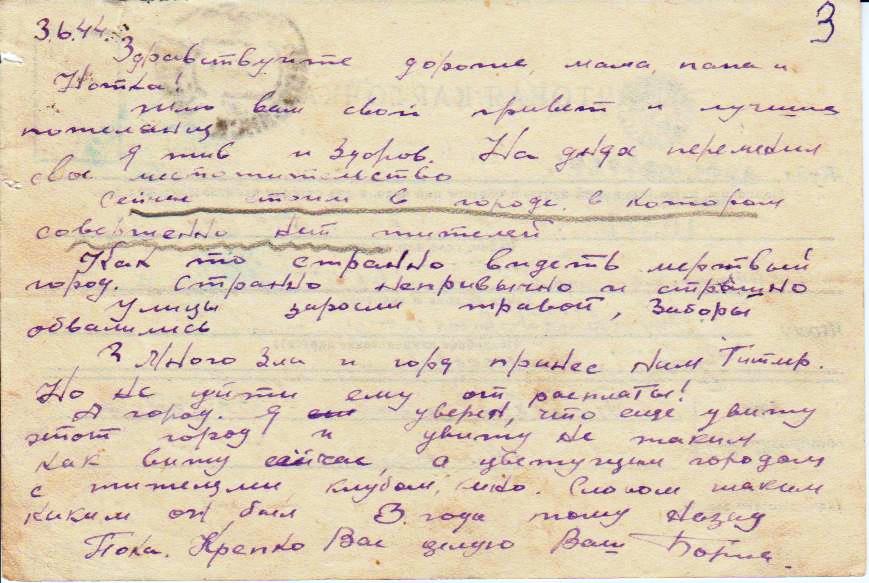 3.6.44. 3
Здравствуйте дорогие, мама, папа и
Нотка!
Шлю вам свой привет и лучшие
пожелания
Я жив и здоров. На днях переменил
свое местожительство
Сейчас стоим в городе, в котором
совершенно нет жителей
Как то странно видеть мертвый
город. Странно непривычно и страшно
Улицы заросли травой, Заборы
обвалились
Много Зла и горя принес нам Гитлер.
Но не уйти ему от расплаты!
А город. Я уверен, что еще увижу
этот город и увижу не таким
как вижу сейчас, а цветущим городом
с жителями клубом, кино. Словом таким
каким он был 3 года тому назад
Пока. Крепко Вас целую Ваш Боря.